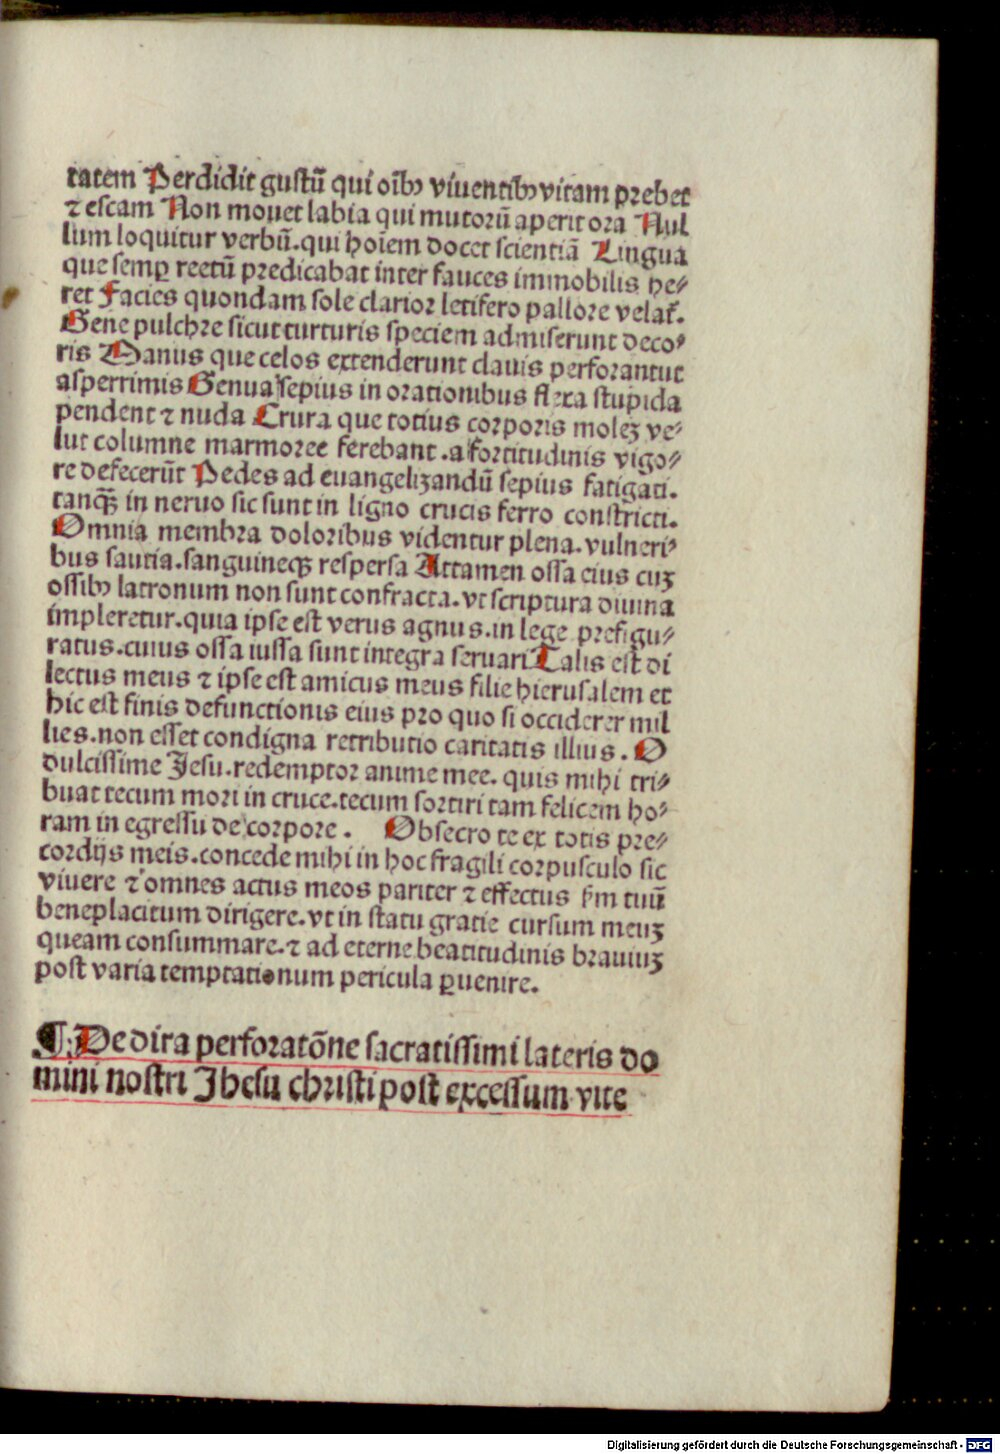 tatem Perdidit gustū qui oībꝫ viuentibꝫ vitam prebet
⁊ escam Non mouet labia qui mutorū aperit ora Nul
lum loquitur verbū.qui hoīem docet scientiā Lingua
que semꝑ rectū predicabat inter fauces immobilis he⸗
ret Facies quondam sole clarior letifero pallore velat̄.
Gene pulchre sicut turturis speciem admiserunt deco⸗
ris Manus que celos extenderunt clauis perforantur
asperrimis Genua sepius in orationibus flexa stupida
pendent ⁊ nuda Crura que totius corporis moleꝫ ve⸗
lut columne marmoree ferebant .a fortitudinis vigo⸗
re defecerūt Pedes ad euangelizandū sepius fatigati.
tanqꝫ̄ in neruo sic sunt in ligno crucis ferro constricti.
Omnia membra doloribus videntur plena.vulneri⸗
bus sautia.sanguineqꝫ respersa Attamen ossa eius cuꝫ
ossibꝫ latronum non sunt confracta.vt scriptura diuina
impleretur.quia ipse est verus agnus.in lege prefigu⸗
ratus.cuius ossa iussa sunt integra seruari Talis est di
lectus meus ⁊ ipse est amicus meus filie hierusalem et
hic est finis defunctionis eius pro quo si occiderer mil
lies.non esset condigna retributio caritatis illius. O
dulcissime Jesu.redemptor anime mee. quis mihi tri⸗
buat tecum mori in cruce.tecum sortiri tam felicem ho⸗
ram in egressu de corpore . Obsecro te ex totis pre⸗
cordijs meis.concede mihi in hoc fragili corpusculo sic
viuere ⁊ omnes actus meos pariter ⁊ effectus ẜm tuū
beneplacitum dirigere.vt in statu gratie cursum meuꝫ
queam consummare.⁊ ad eterne beatitudinis brauiuꝫ
post varia temptationum pericula ꝑuenire.
¶ De dira perforatōne sacratissimi lateris do
mini nostri Jhesu christi post excessum vite
Digitalisierung gefördert durch die Deutsche Forschungsgemeinschaft - DFG